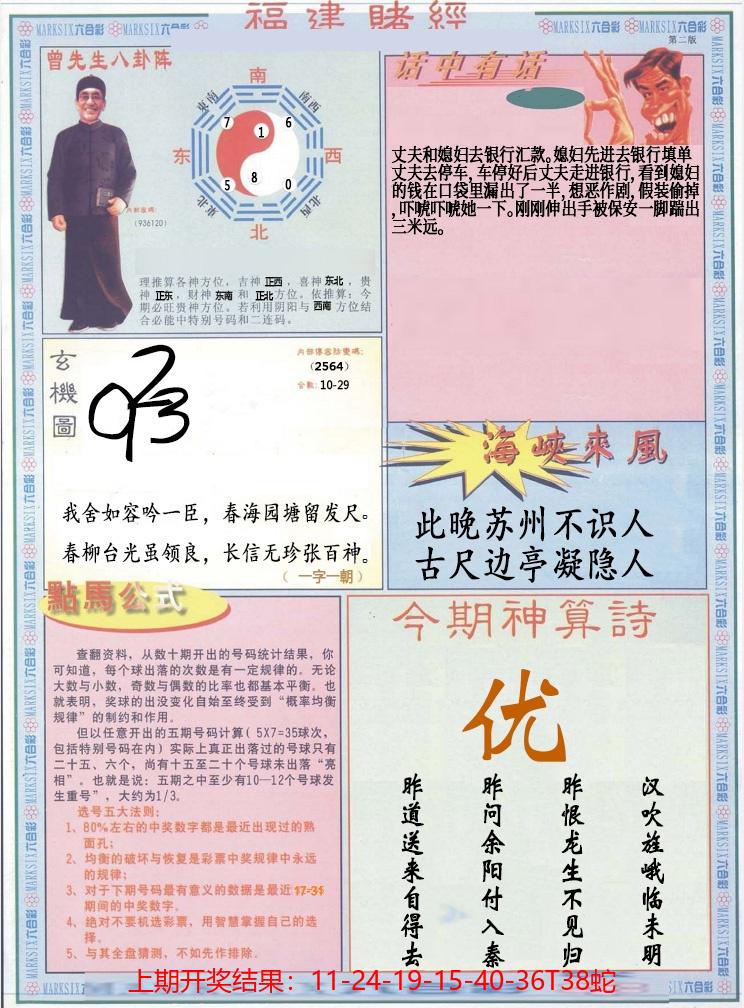 福建賭經
MARKSIX六合彩 MARKSIX六合彩 MARKSIX六合彩 MARKSIX六合彩
第二版
曾先生八卦阵
南
東南 南西
7 1 6
东 西
5 8 0
東北 北西
北
内部密碼:
(936120)
理推算各神方位，吉神 正西 ，喜神 东北 ，贵
神 正东 ，财神 东南 和 正北 方位。依推算：今
期必旺贵神方位。若利用阴阳与 西南 方位结
合必能中特别号码和二连码。
话中有话
丈夫和媳妇去银行汇款。媳妇先进去银行填单
丈夫去停车，车停好后丈夫走进银行，看到媳妇
的钱在口袋里漏出了一半，想恶作剧，假装偷掉
，吓唬吓唬她一下。刚刚伸出手被保安一脚踹出
三米远。
玄機圖
(2564)
合数: 10-29
我舍如容吟一臣，春海园塘留发尺。
春柳台光虽领良，长信无珍张百神。
（ 一字一朝 ）
海峽來風
此晚苏州不识人
古尺边亭凝隐人
點馬公式
查翻资料，从数十期开出的号码统计结果，你
可知道，每个球出落的次数是有一定规律的。无论
大数与小数，奇数与偶数的比率也都基本平衡。也
就表明，奖球的出没变化自始至终受到“概率均衡
规律”的制约和作用。
但以任意开出的五期号码计算( 5X7=35球次，
包括特别号码在内) 实际上真正出落过的号球只有
二十五、六个，尚有十五至二十个号球未出落“亮
相”。也就是说：五期之中至少有10—12个号球发
生重号”，大约为1/3。
选号五大法则：
1、80%左右的中奖数字都是最近出现过的熟
面孔；
2、均衡的破坏与恢复是彩票中奖规律中永远
的规律；
3、对于下期号码最有意义的数据是最近17-31
期间的中奖数字。
4、绝对不要机选彩票，用智慧掌握自己的选
择。
5、与其全盘猜测，不如先作排除．
今期神算詩
优
昨道送来自得去
昨问余阳付入秦
昨恨龙生不见归
汉吹旌峨临未明
上期开奖结果：11-24-19-15-40-36T38蛇